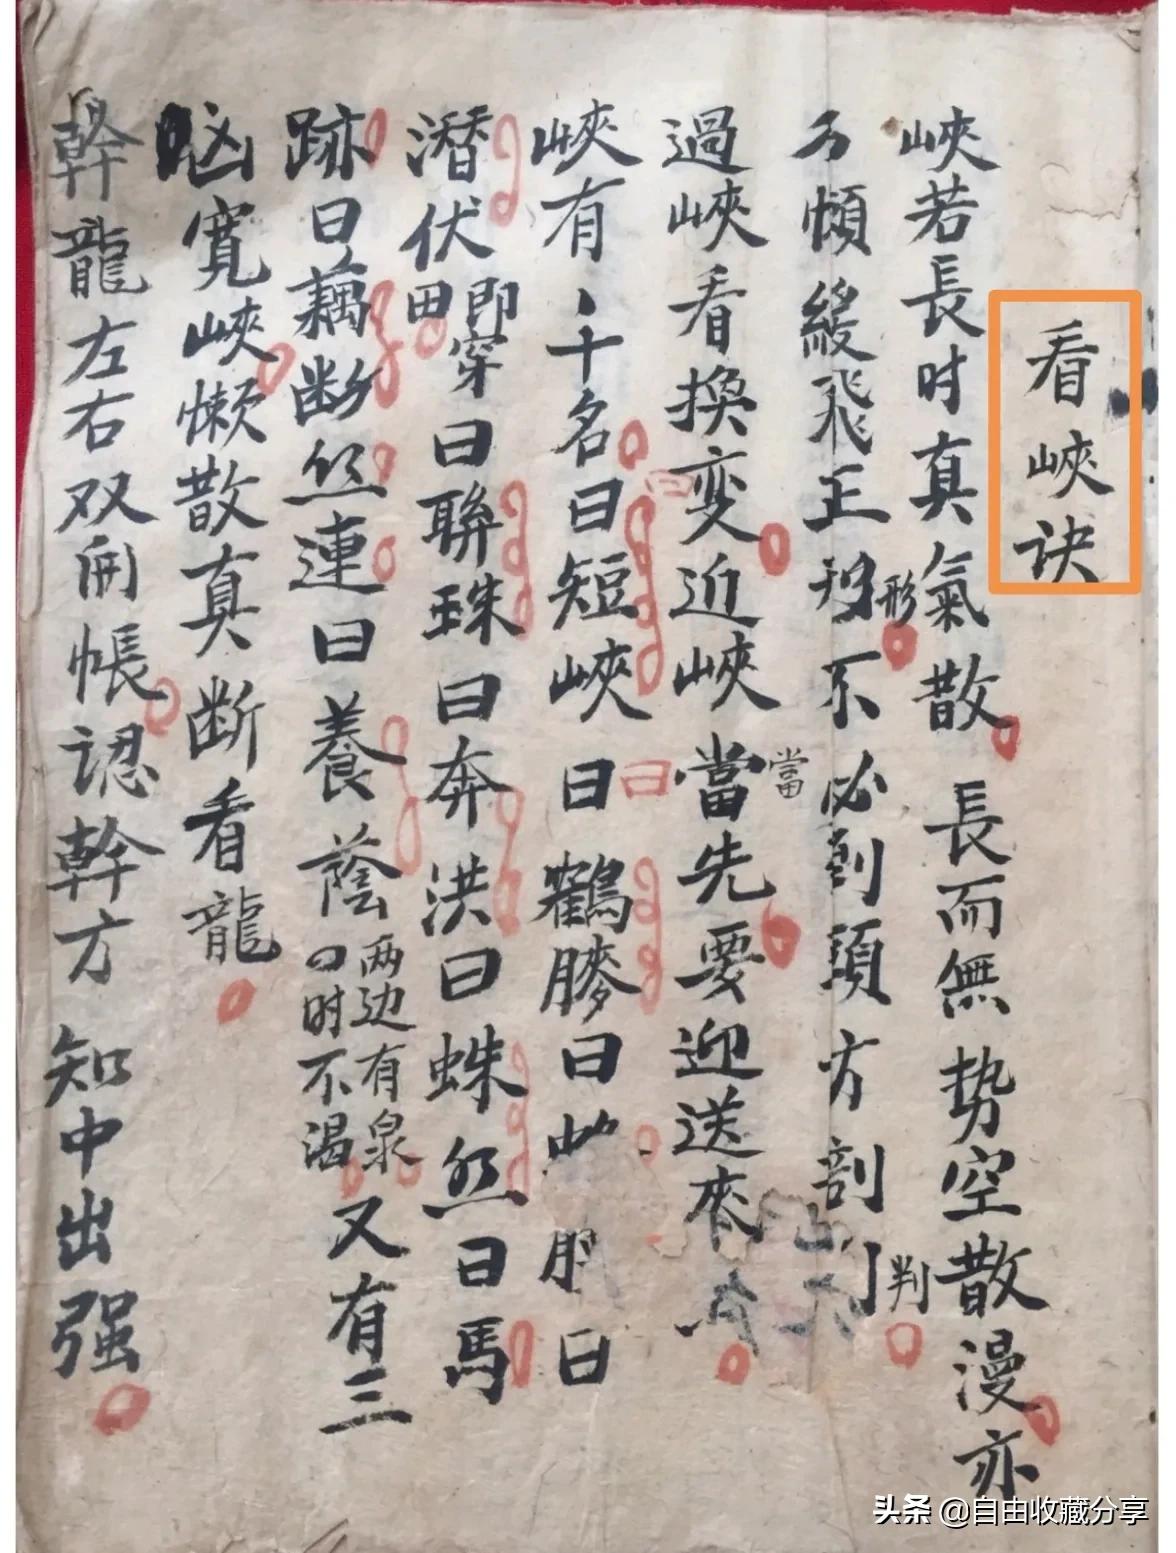 看峽诀
峽若長时真氣散長而無势空散漫亦
頻緩飛正形不必到頭方剖判
過峽看換变近峽當先要迎送來
峽有十名曰短峽曰鶴膝曰
潜伏即穿田曰聨珠曰奔洪曰蛛丝曰馬
跡曰藕断丝連曰養蔭两边有泉四时不渴又有三
凶寬峽懒散真断看龍
幹龍左右双開帳認幹方知中出强
头条 @自由收藏分享